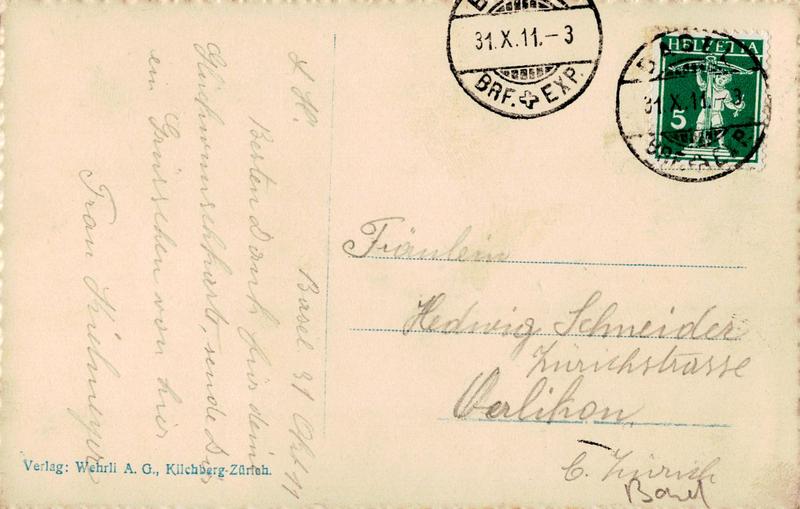 Basel 31 Okt 11
L. H.
Besten Dank für dein
Glückwunschkart, sende Dir
ein Grüsschen von hier
Frau
Verlag: Wehrli A. G., Kilchberg-Zürich.
31.X.11.-3
BRF. EXP.
HELVETIA
5
BASEL
31.X.11.-3
BRF. EXP.
Fräulein
Hedwig Schneider
Zürichstrasse
Oerlikon
b. Zürich
Basel